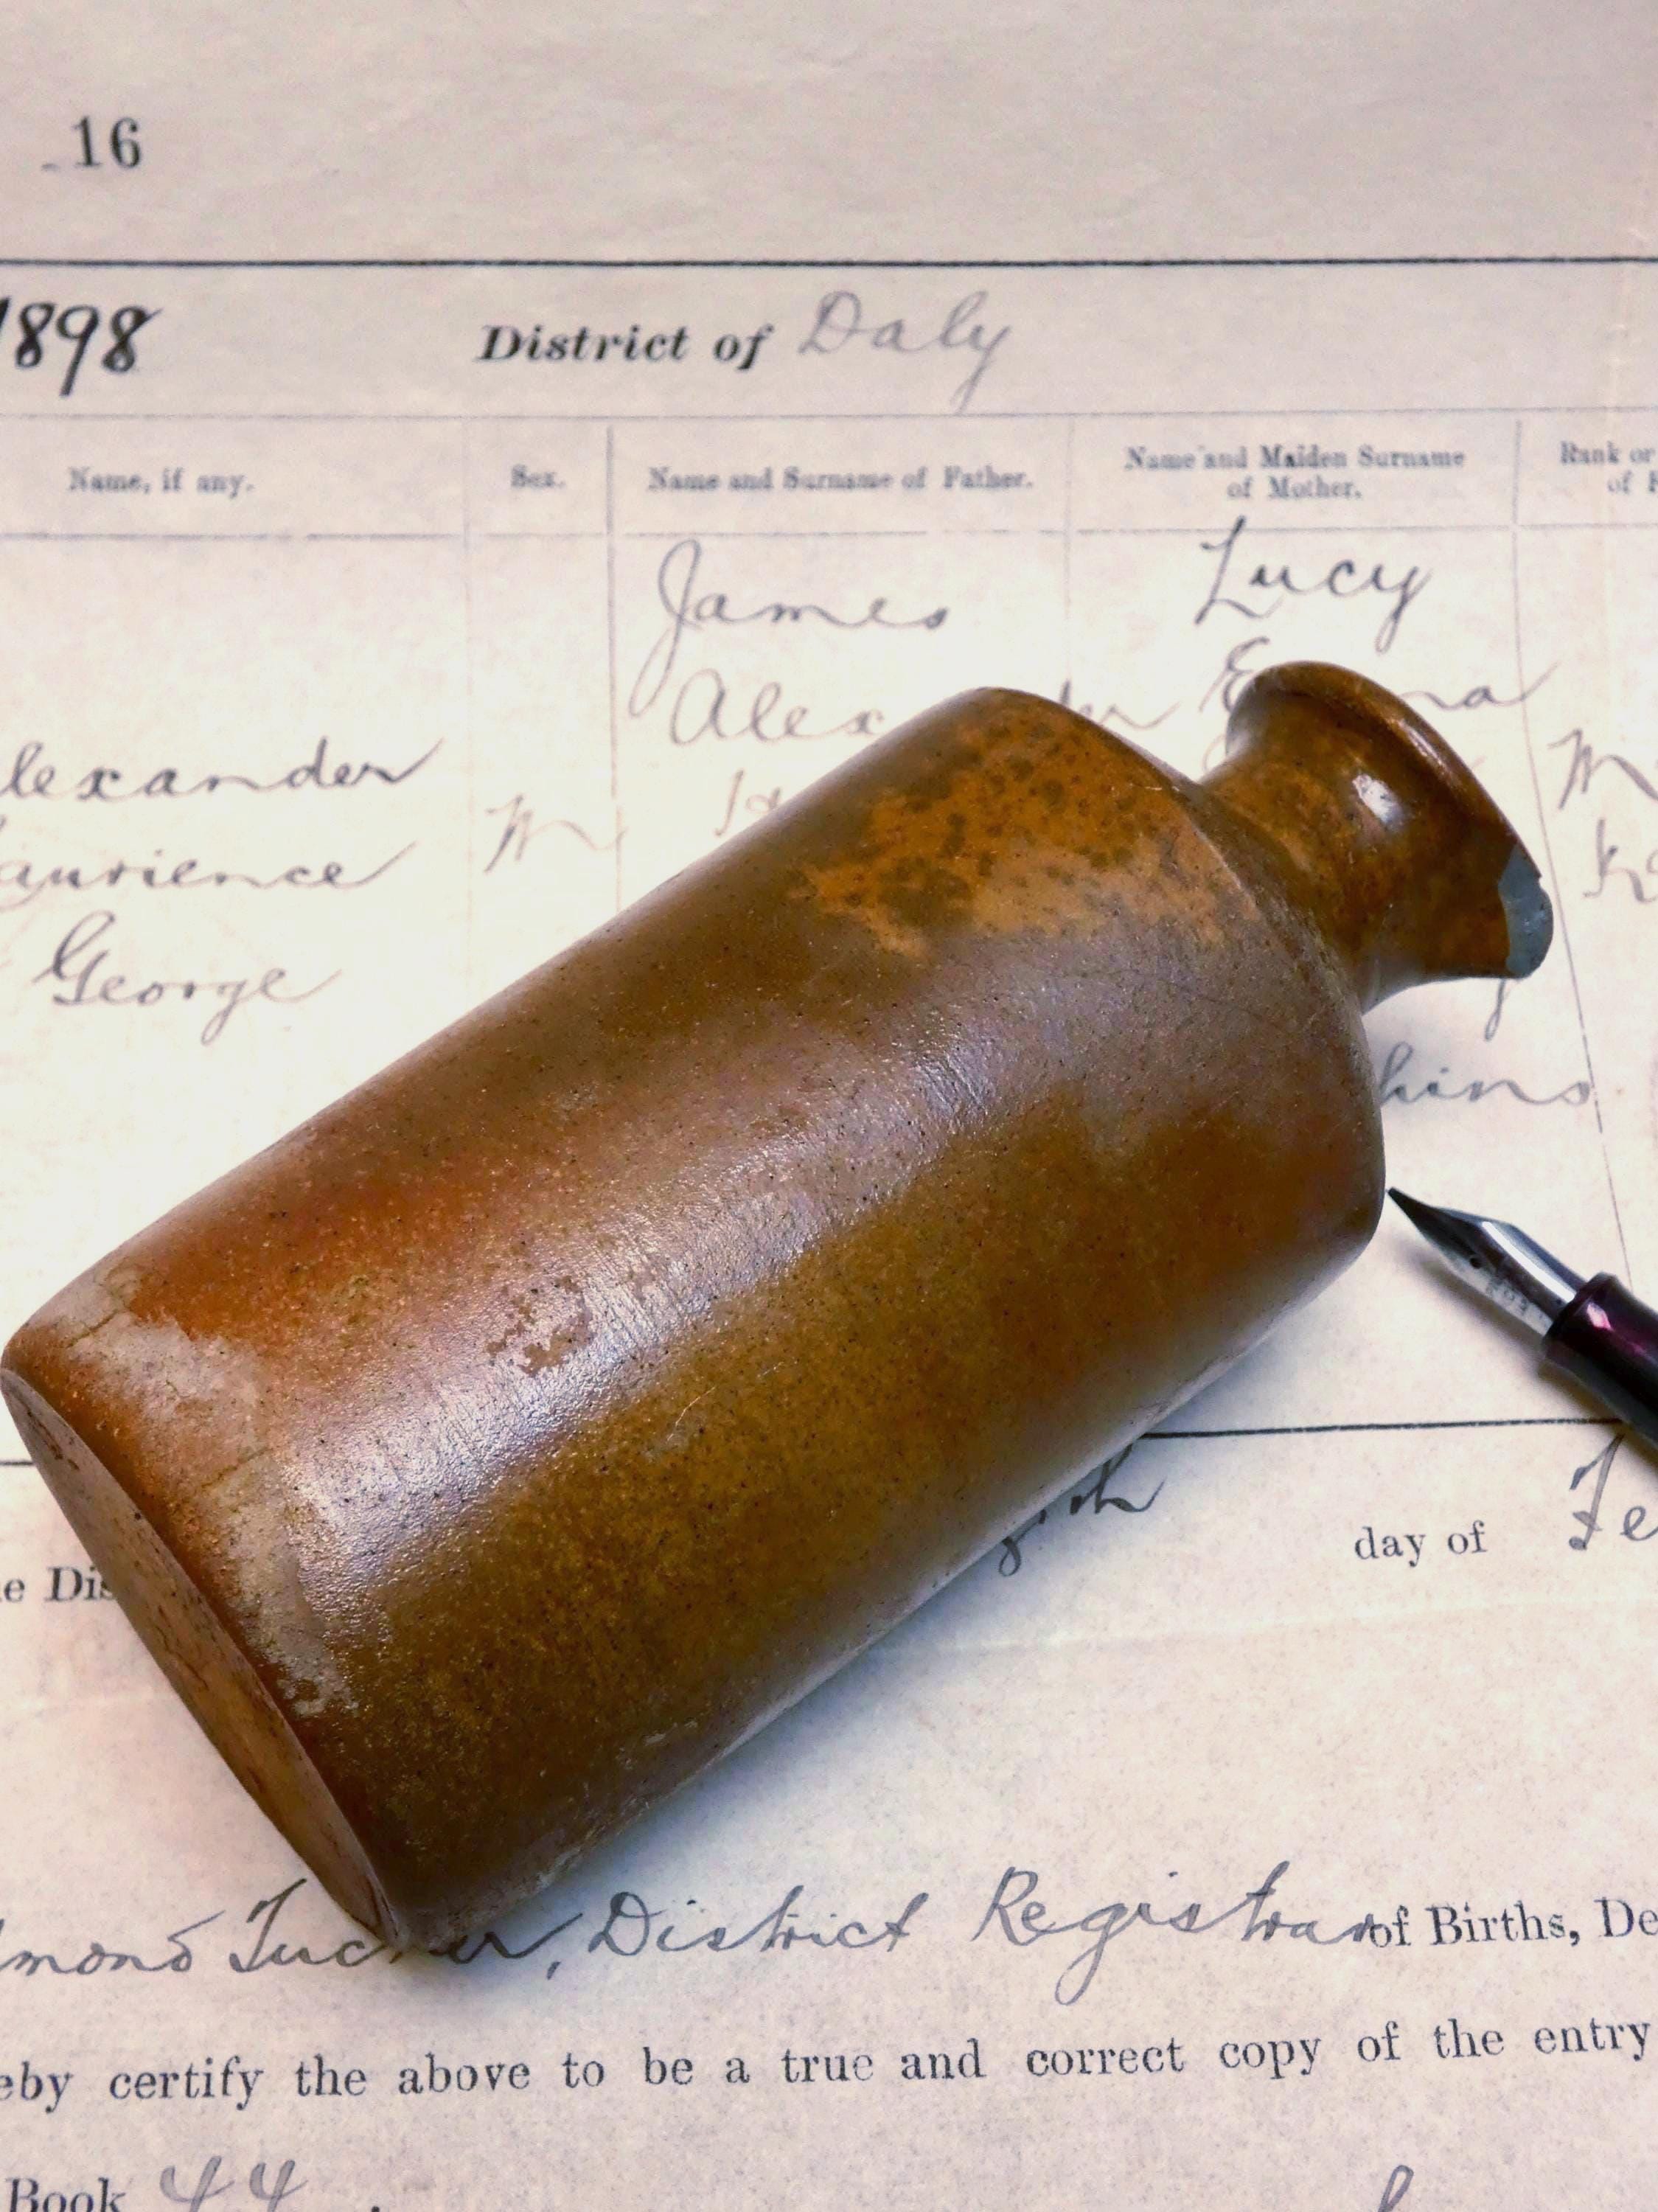 16
1898 District of Daly
Name, if any. Sex. Name and Surname of Father. Name and Maiden Surname of Mother. Rank or
of
James Lucy
lexander
M
aurience
George
hins
day of Fe
e Dis
mond Tucker, District Registrar of Births, De
eby certify the above to be a true and correct copy of the entry
Book 44